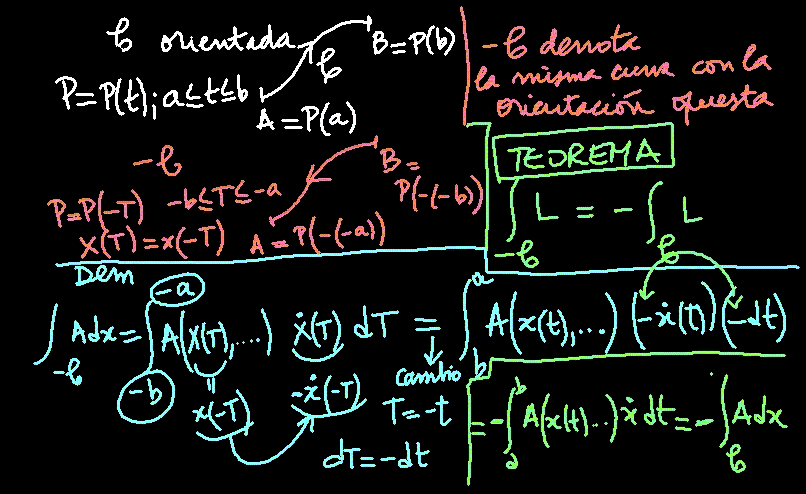 𝒞 orientada
P=P(t); a≤t≤b
A=P(a)
B=P(b)
𝒞
-𝒞 denota
la misma curva con la
orientación opuesta
-𝒞
P=P(-T) -b≤T≤-a
X(T)=x(-T)
A=P(-(-a))
B=
P(-(-b))
TEOREMA
∫_{-𝒞} L = -∫_{𝒞} L
Dem
∫_{-𝒞} Adx = ∫_{-b}^{-a} A(X(T),...) Ẋ(T) dT = ∫_{b}^{a} A(x(t),...) (-ẋ(t)) (-dt)
x(-T)
-ẋ(-T)
cambio
T=-t
dT=-dt
= -∫_{a}^{b} A(x(t)...) ẋ dt = -∫_{𝒞} Adx